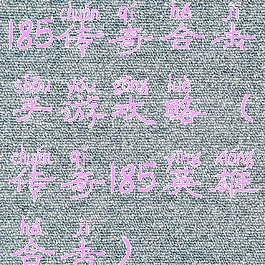 chuán qí hé jī
185传奇合击
shǒu yóu gōng lüè
手游攻略（
chuán qí yīng xióng
传奇185英雄
hé jī
合击）